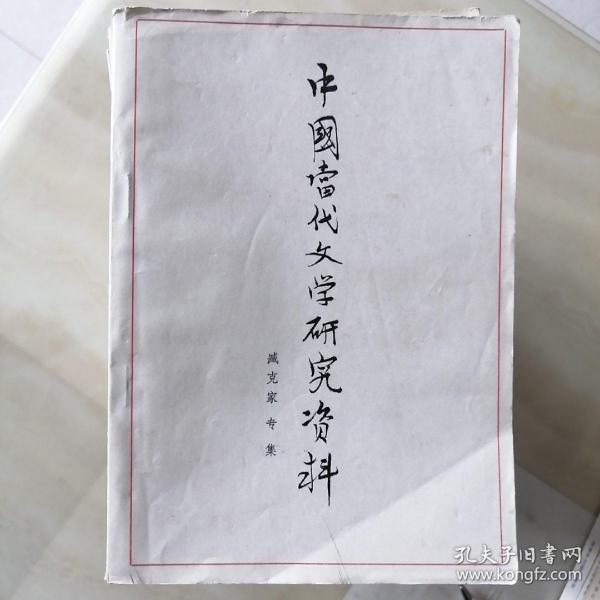 中國當代文学研究资料
臧克家专集
孔夫子旧書网
www.kongfz.com